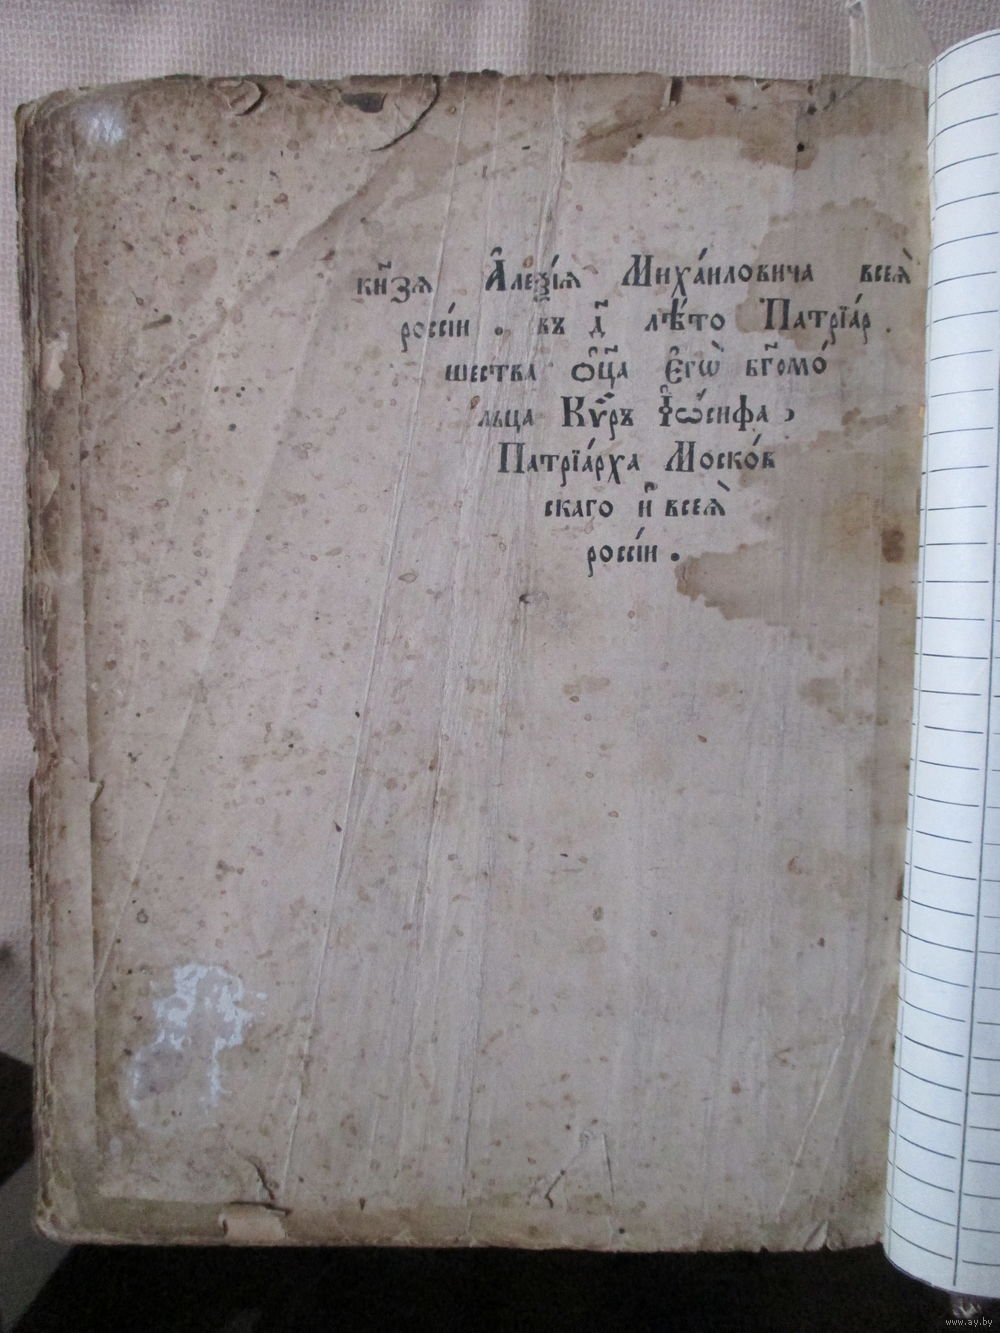 кн҃зѧ А҆леѯі́ѧ Миха́иловича всеѧ̀
россі́и . въ д҃ лѣ́то Патрїа́р .
шества ѻ҆ц҃а є҆гѡ̀ бг҃омо́
льца Кѵ́ръ І҆ѡ́сифа ,
Патрїа́рха Моско́в
скаго и҆ всеѧ̀
россі́и .
www.ay.by